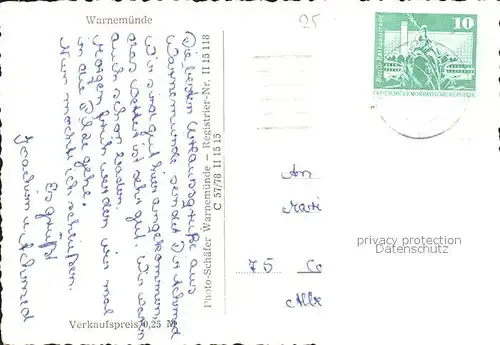 Warnemünde
25
10
Berlin-Rathausstraße
DEUTSCHE DEMOKRATISCHE REPUBLIK
Die besten Urlaubsgrüße aus
Warnemünde sendet Dir Achmed
Wir sind gut hier angekommen,
das Wetter ist sehr gut. Wir waren
auch schon baden.
Morgen früh werden wir mal
in die Pilze gehe.
Nun möchte ich schließen.
Es grüßt
Joachim u. Achmed
Photo-Schäfer Warnemünde – Registrier-Nr. II 15 118
C 57/78 II 15 15
An
75
privacy protection
Datenschutz
Verkaufspreis 0,25 M